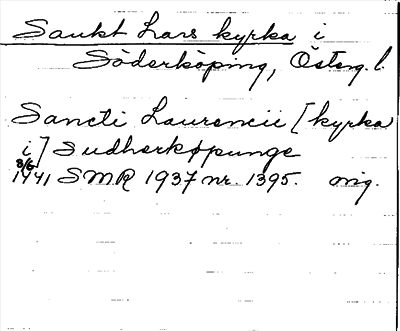 Sankt Lars kyrka i
Söderköping, Österg. l.
Sancti Laurencii [kyrka
i] Sudherkøpunge
3/6
1441 SMR 1937 nr. 1395. orig.